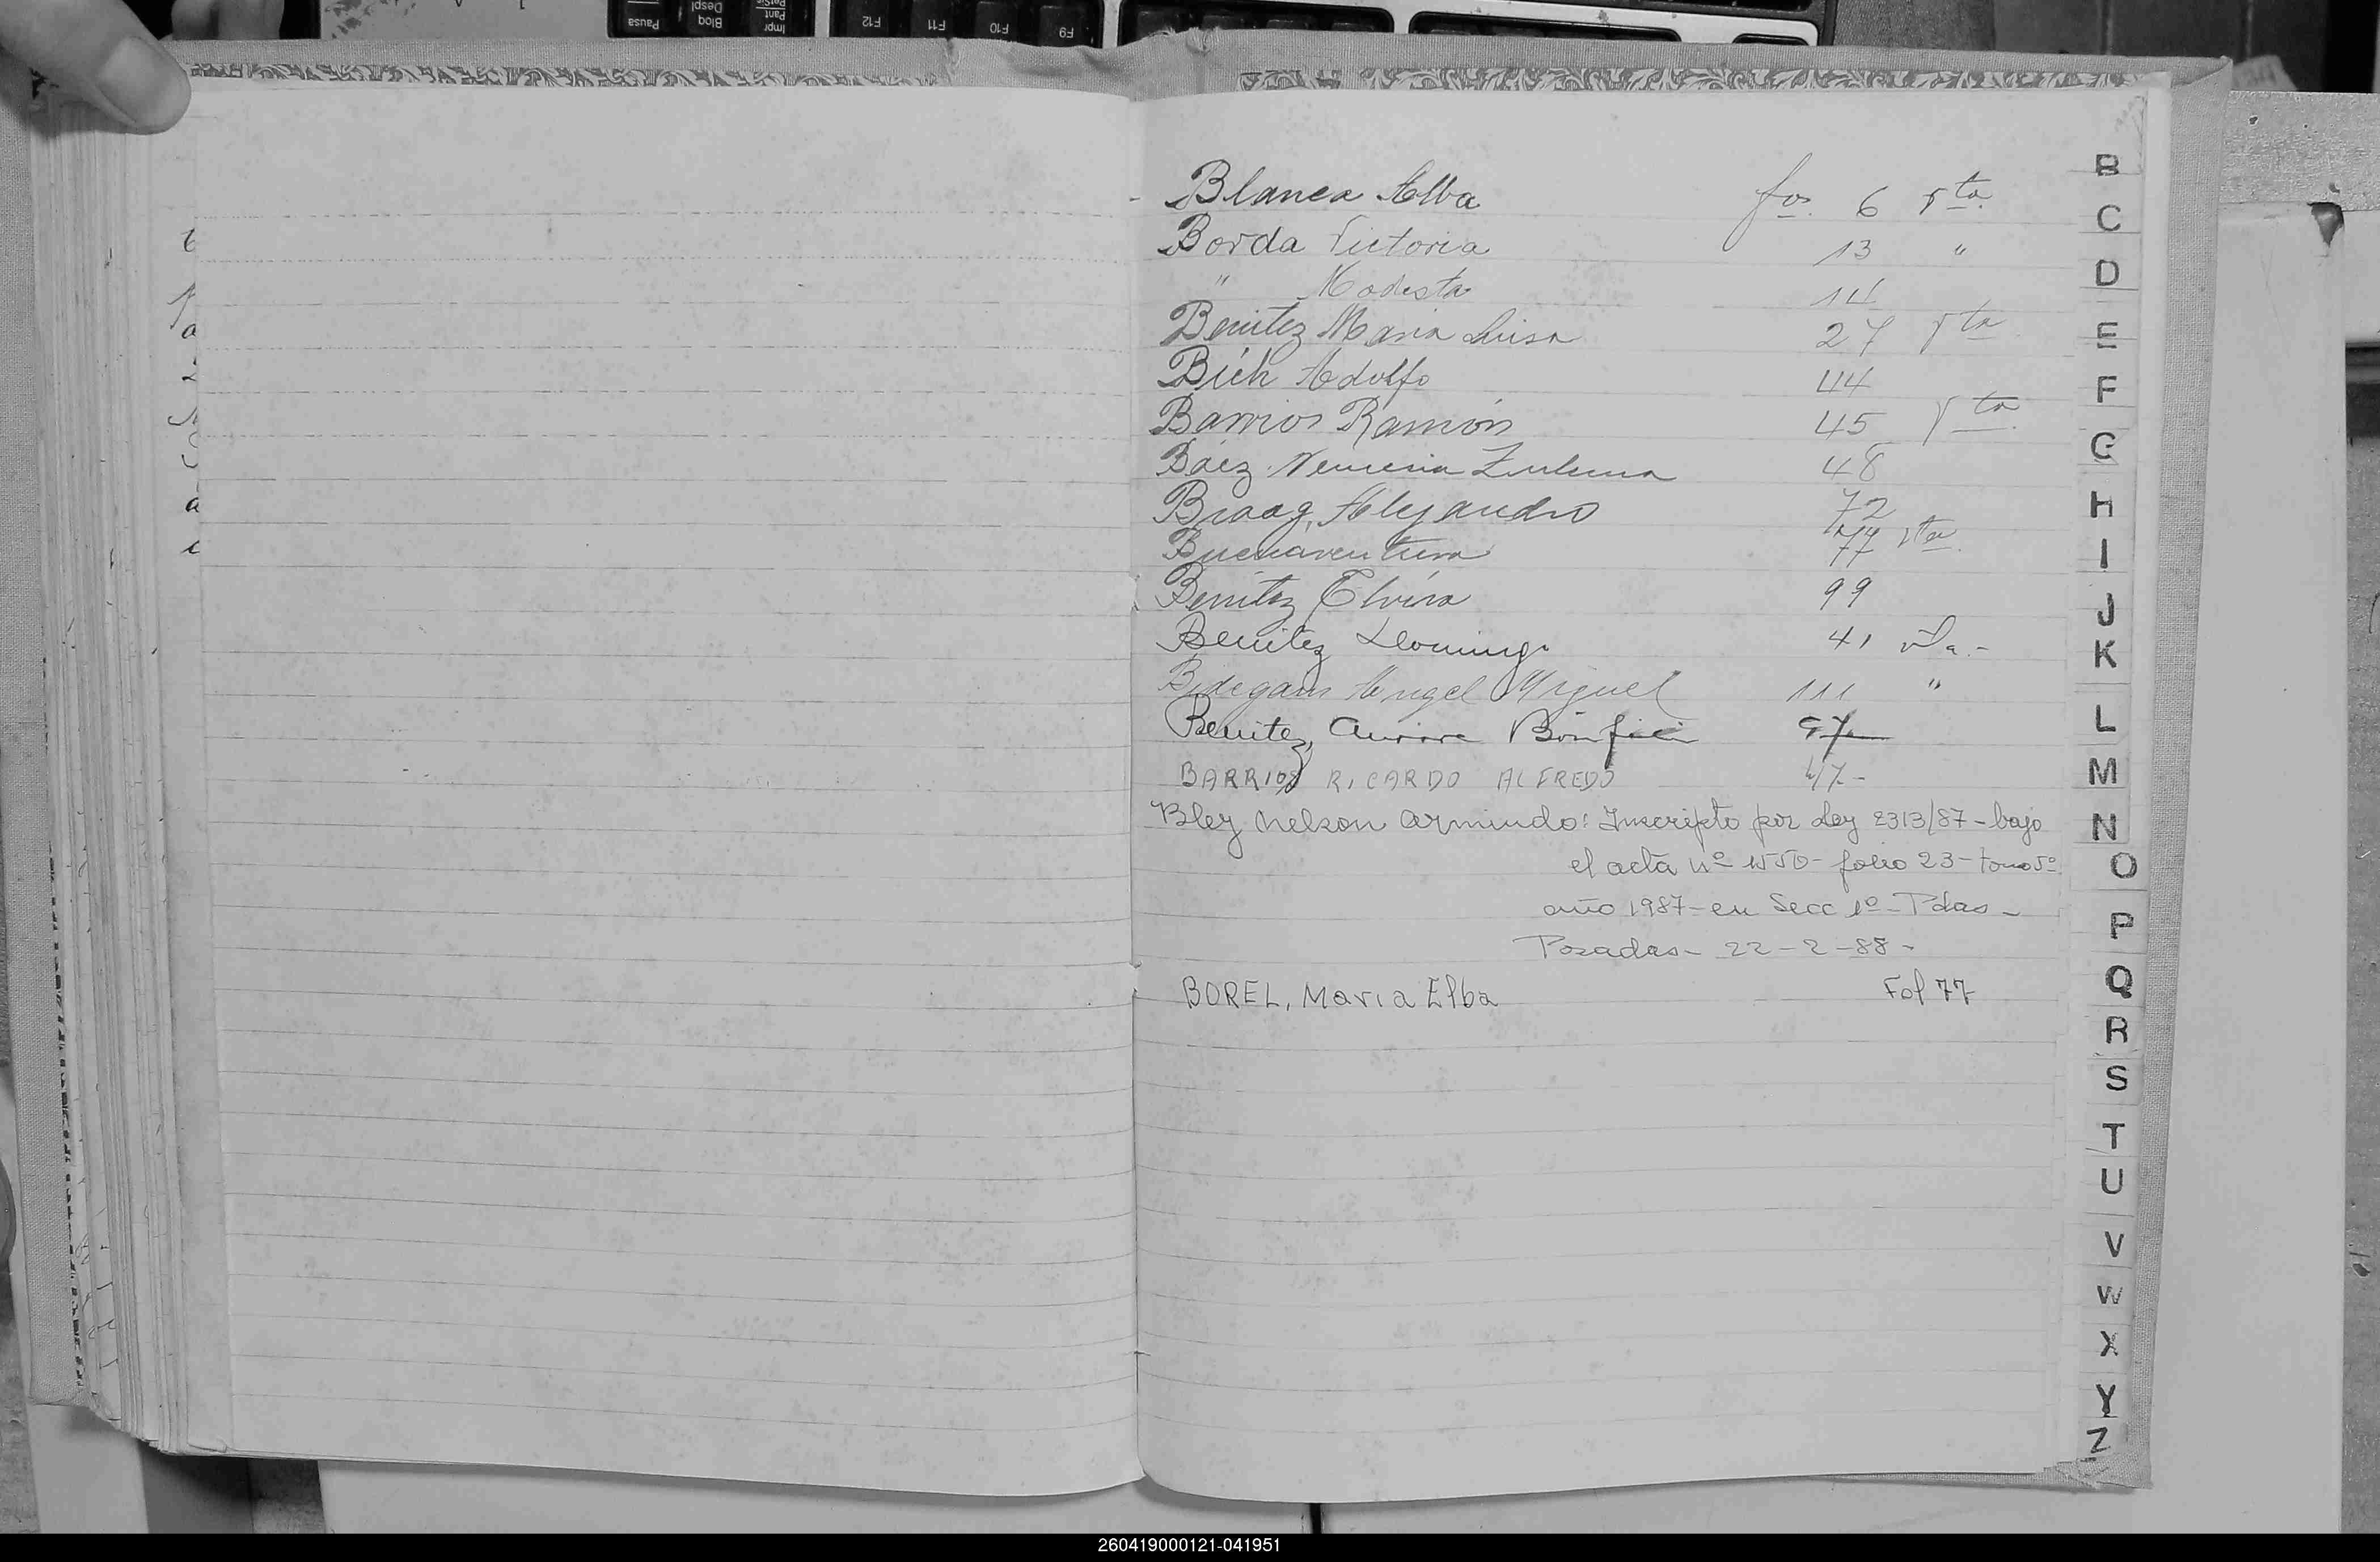 Blanca Alba fos. 6 vta.
Borda Victoria 13 "
" Modesta 14
Benitez Maria Luisa 27 vta
Bich Adolfo 44
Barrios Ramón 45 vta.
Báez Nemesia Zulema 48
Braag, Alejandro 72
Buenaventura 77 vta.
Benitez Elvira 99
Benitez Domingo 41 vta.-
Angel Miguel 111 "
Benitez, Aurora 97
BARRIOS RICARDO ALFREDO 47-
Bley Nelson Armindo: Inscripto por Ley 2313/87 - bajo
el acta nº 1550 - folio 23 - tomo 5º
año 1987 - en Secc 1º - Pdas -
Posadas - 22 - 2 - 88 -
BOREL, Maria Elba Fol 77
B
C
D
E
F
G
H
I
J
K
L
M
N
O
P
Q
R
S
T
U
V
W
X
Y
Z
Pausa
Bloq
Despl
Impr
Pant
F12
F11
F10
F9
260419000121-041951